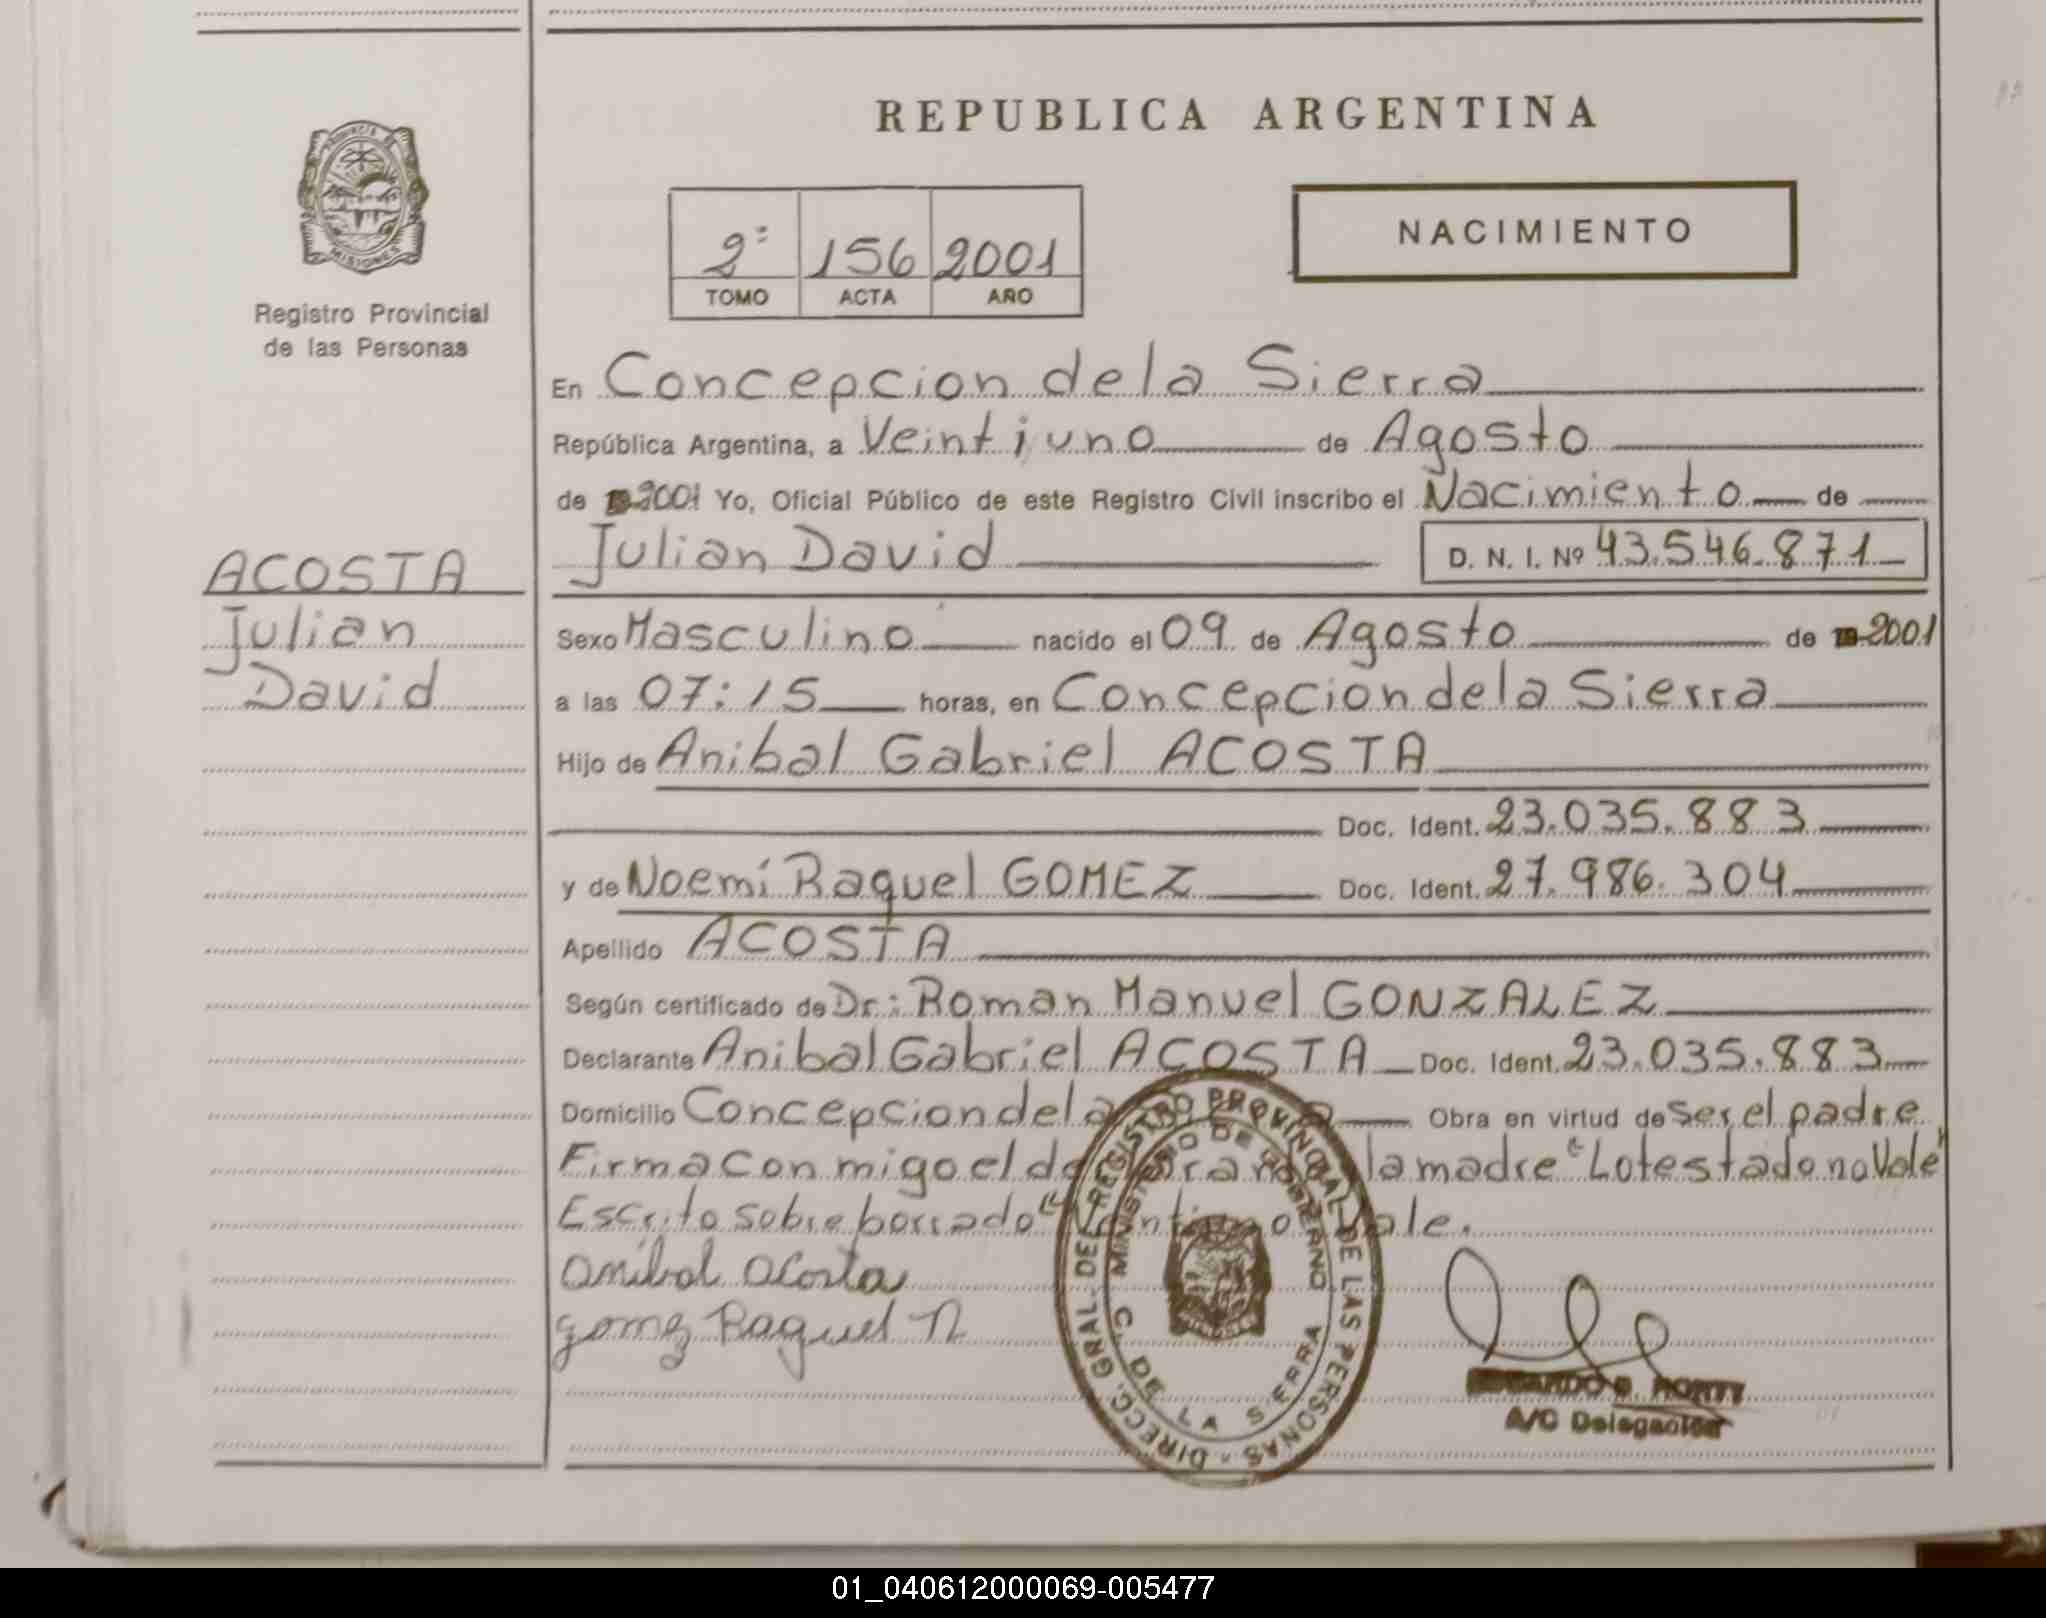 REPUBLICA ARGENTINA
PROVINCIA DE MISIONES
Registro Provincial
de las Personas
NACIMIENTO
2º 156 2001
TOMO ACTA AÑO
En Concepcion de la Sierra
República Argentina, a Veintiuno de Agosto
de 2001 Yo, Oficial Público de este Registro Civil inscribo el Nacimiento de
Julian David D. N. I. Nº 43.546.871
ACOSTA
Julian
David
Sexo Masculino nacido el 09 de Agosto de 2001
a las 07:15 horas, en Concepcion de la Sierra
Hijo de Anibal Gabriel ACOSTA
Doc. Ident. 23.035.883
y de Noemí Raquel GOMEZ Doc. Ident. 27.986.304
Apellido ACOSTA
Según certificado de Dr: Roman Manuel GONZALEZ
Declarante Anibal Gabriel ACOSTA Doc. Ident. 23.035.883
Domicilio Concepcion de la Obra en virtud de ser el padre
Firma con migo el la madre "Lo testado no Vale"
Escrito sobre borrado Vale.
Anibal Acosta
Gomez Raquel N
DIRECC. GRAL. DEL REGISTRO PROVINCIAL DE LAS PERSONAS
MINISTERIO DE GOBIERNO
C. DE LA SIERRA
A/C Delegación
01_040612000069-005477